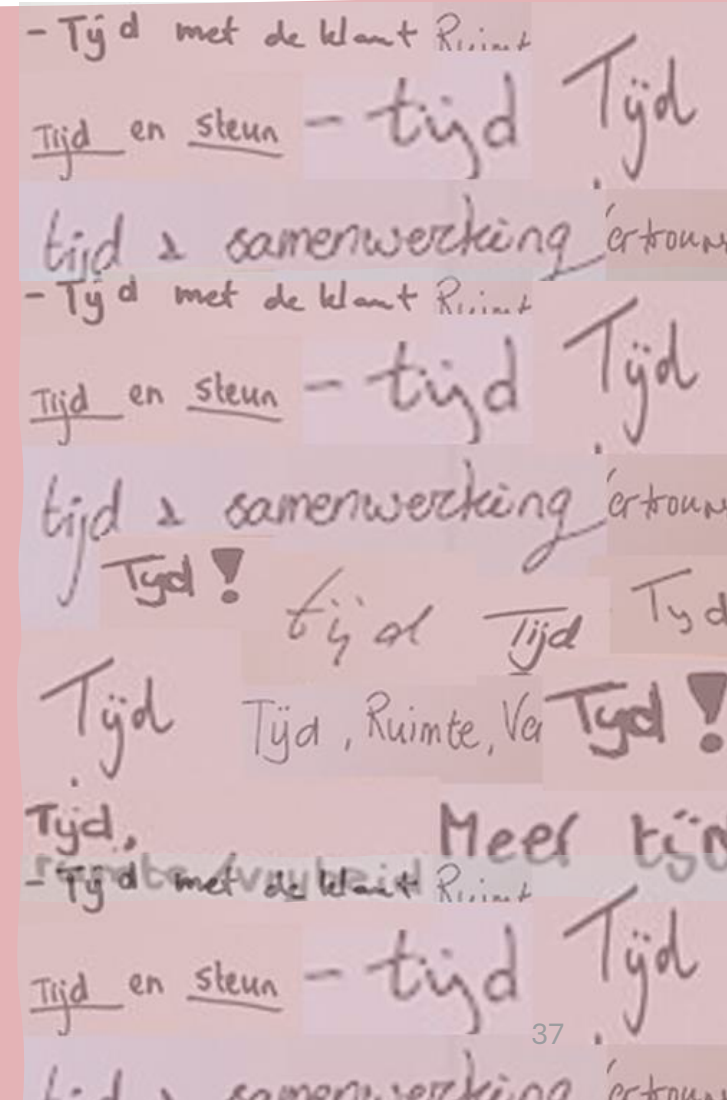 - Tijd met de klant Ruimt
Tijd en steun - tijd Tijd
tijd & samenwerking ertrouw
- Tijd met de klant Ruimt
Tijd en steun - tijd Tijd
tijd & samenwerking ertrouw
Tijd! tijd Tijd Tijd
Tijd Tijd, Ruimte, Ver Tijd!
Tijd, Meer tij
ruimte/vrijheid
- Tijd met de klant Ruimt
Tijd en steun - tijd Tijd
37
tijd & samenwerking ertrouw